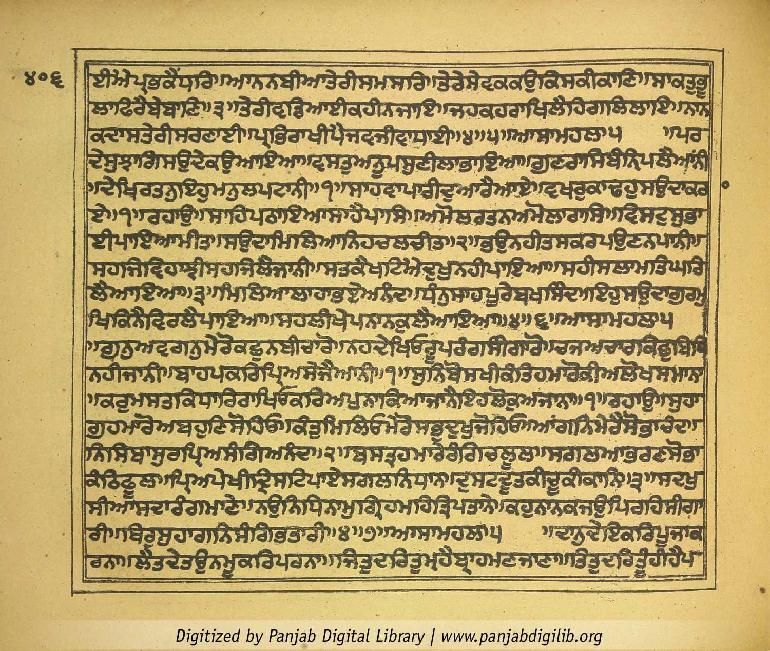 ੪੦੬
ਈਐਪ੍ਰਭਕੈਧਾਰਿ॥ਆਨਨਬੀਆਤੇਰੀਸਮਸਾਰਿ॥ਤੇਰੇਸੇਵਕਕਉਕਿਸਕੀਕਾਣਿ॥ਸਾਕਤੁਭੂ
ਲਾਫਿਰੈਬੇਬਾਣਿ॥੩॥ਤੇਰੀਵਡਿਆਈਕਹੀਨਜਾਇ॥ਜਹਕਹਰਾਖਿਲੈਹਿਗਲਿਲਾਇ॥ਨਾਨ
ਕਦਾਸਤੇਰੀਸਰਣਾਈ॥ਪ੍ਰਭਿਰਾਖੀਪੈਜਵਜੀਵਾਧਾਈ॥੪॥੫॥ਆਸਾਮਹਲਾ੫ ॥ਪਰ
ਦੇਸੁਝਾਗਿਸਉਦੇਕਉਆਇਆ॥ਵਸਤੁਅਨੂਪਸੁਣੀਲਾਭਾਇਆ॥ਗੁਣਰਾਸਿਬੰਨਿਪਲੈਆਨੀ
॥ਦੇਖਿਰਤਨੁਇਹੁਮਨੁਲਪਟਾਨੀ॥੧॥ਸਾਹਵਾਪਾਰੀਦੁਆਰੈਆਏ॥ਵਖਰੁਕਾਢਹੁਸਉਦਾਕਰ
ਏ॥੧॥ਰਹਾਉ॥ਸਾਹਿਪਠਾਇਆਸਾਹੈਪਾਸਿ॥ਅਮੋਲਰਤਨਅਮੋਲਾਰਾਸਿ॥ਵਿਸਟੁਸੁਭਾ
ਈਪਾਇਆਮੀਤ॥ਸਉਦਾਮਿਲਿਆਨਿਹਚਲਚੀਤ॥੨॥ਭਉਨਹੀਤਸਕਰਪਉਣਨਪਾਨੀ॥
ਸਹਜਿਵਿਹਾਝੀਸਹਜਿਲੈਜਾਨੀ॥ਸਤਕੈਖਟਿਐਦੁਖੁਨਹੀਪਾਇਆ॥ਸਹੀਸਲਾਮਤਿਘਰਿ
ਲੈਆਇਆ॥੩॥ਮਿਲਿਆਲਾਹਾਭਏਅਨੰਦ॥ਧੰਨੁਸਾਹਪੂਰੇਬਖਸਿੰਦ॥ਇਹੁਸਉਦਾਗੁਰਮੁ
ਖਿਕਿਨੈਵਿਰਲੈਪਾਇਆ॥ਸਹਲੀਖੇਪਨਾਨਕੁਲੈਆਇਆ॥੪॥੬॥ਆਸਾਮਹਲਾ੫
॥ਗੁਨੁਅਵਗਨੁਮੇਰੋਕਛੁਨਬੀਚਾਰੋ॥ਨਹਦੇਖਿਓਰੂਪਰੰਗਸੀਗਾਰੋ॥ਚਜਅਚਾਰਕਿਛੁਬਿਧਿ
ਨਹੀਜਾਨੀ॥ਬਾਹਪਕਰਿਪ੍ਰਿਅਸੇਜੈਆਨੀ॥੧॥ਸੁਨਿਬੋਸਖੀਕੰਤਿਹਮਾਰੋਕੀਅਲੋਖਸਮਾਨਾ
॥ਕਰੁਮਸਤਕਿਧਾਰਿਰਾਖਿਓਕਰਿਅਪੁਨਾਕਿਆਜਾਨੈਇਹੁਲੋਕੁਅਜਾਨਾ॥੧॥ਰਹਾਉ॥ਸੁਹਾ
ਗੁਹਮਾਰੋਅਬਹੁਣਿਸੋਹਿਓ॥ਕੰਤੁਮਿਲਿਓਮੇਰੋਸਭੁਦੁਖੁਜੋਹਿਓ॥ਆਂਗਨਿਮੇਰੈਸੋਭਾਚੰਦ॥
ਨਿਸਿਬਾਸੁਰਪ੍ਰਿਅਸੰਗਿਅਨੰਦ॥੨॥ਬਸਤ੍ਰਹਮਾਰੇਰੰਗਿਚਲੂਲ॥ਸਗਲਆਭਰਣਸੋਭਾ
ਕੰਠਿਫੂਲ॥ਪ੍ਰਿਅਪੇਖੀਦ੍ਰਿਸਟਿਪਾਏਸਗਲਨਿਧਾਨ॥ਦੁਸਟਦੂਤਕੀਚੂਕੀਕਾਨਿ॥੩॥ਸਦਖੁ
ਸੀਆਸਦਾਰੰਗਮਾਣੇ॥ਨਉਨਿਧਿਨਾਮੁਗ੍ਰਿਹਮਹਿਤ੍ਰਿਪਤਾਨੇ॥ਕਹੁਨਾਨਕਜਉਪਿਰਹਿਸੀਗਾ
ਰੀ॥ਥਿਰੁਸੁਹਾਗਨਿਸੰਗਿਭਤਾਰੀ॥੪॥੭॥ਆਸਾਮਹਲਾ੫ ॥ਦਾਨੁਦੇਇਕਰਿਪੂਜਾਕ
ਰਨਾ॥ਲੈਤਦੇਤਉਨ੍ਮੂਕਰਿਪਰਨਾ॥ਜਿਤੁਦਰਿਤੁਮ੍ਹੈਬ੍ਰਾਹਮਣਜਾਣਾ॥ਤਿਤੁਦਰਿਤੂੰਹੀਹੈਪ
Digitized by Panjab Digital Library | www.panjabdigilib.org